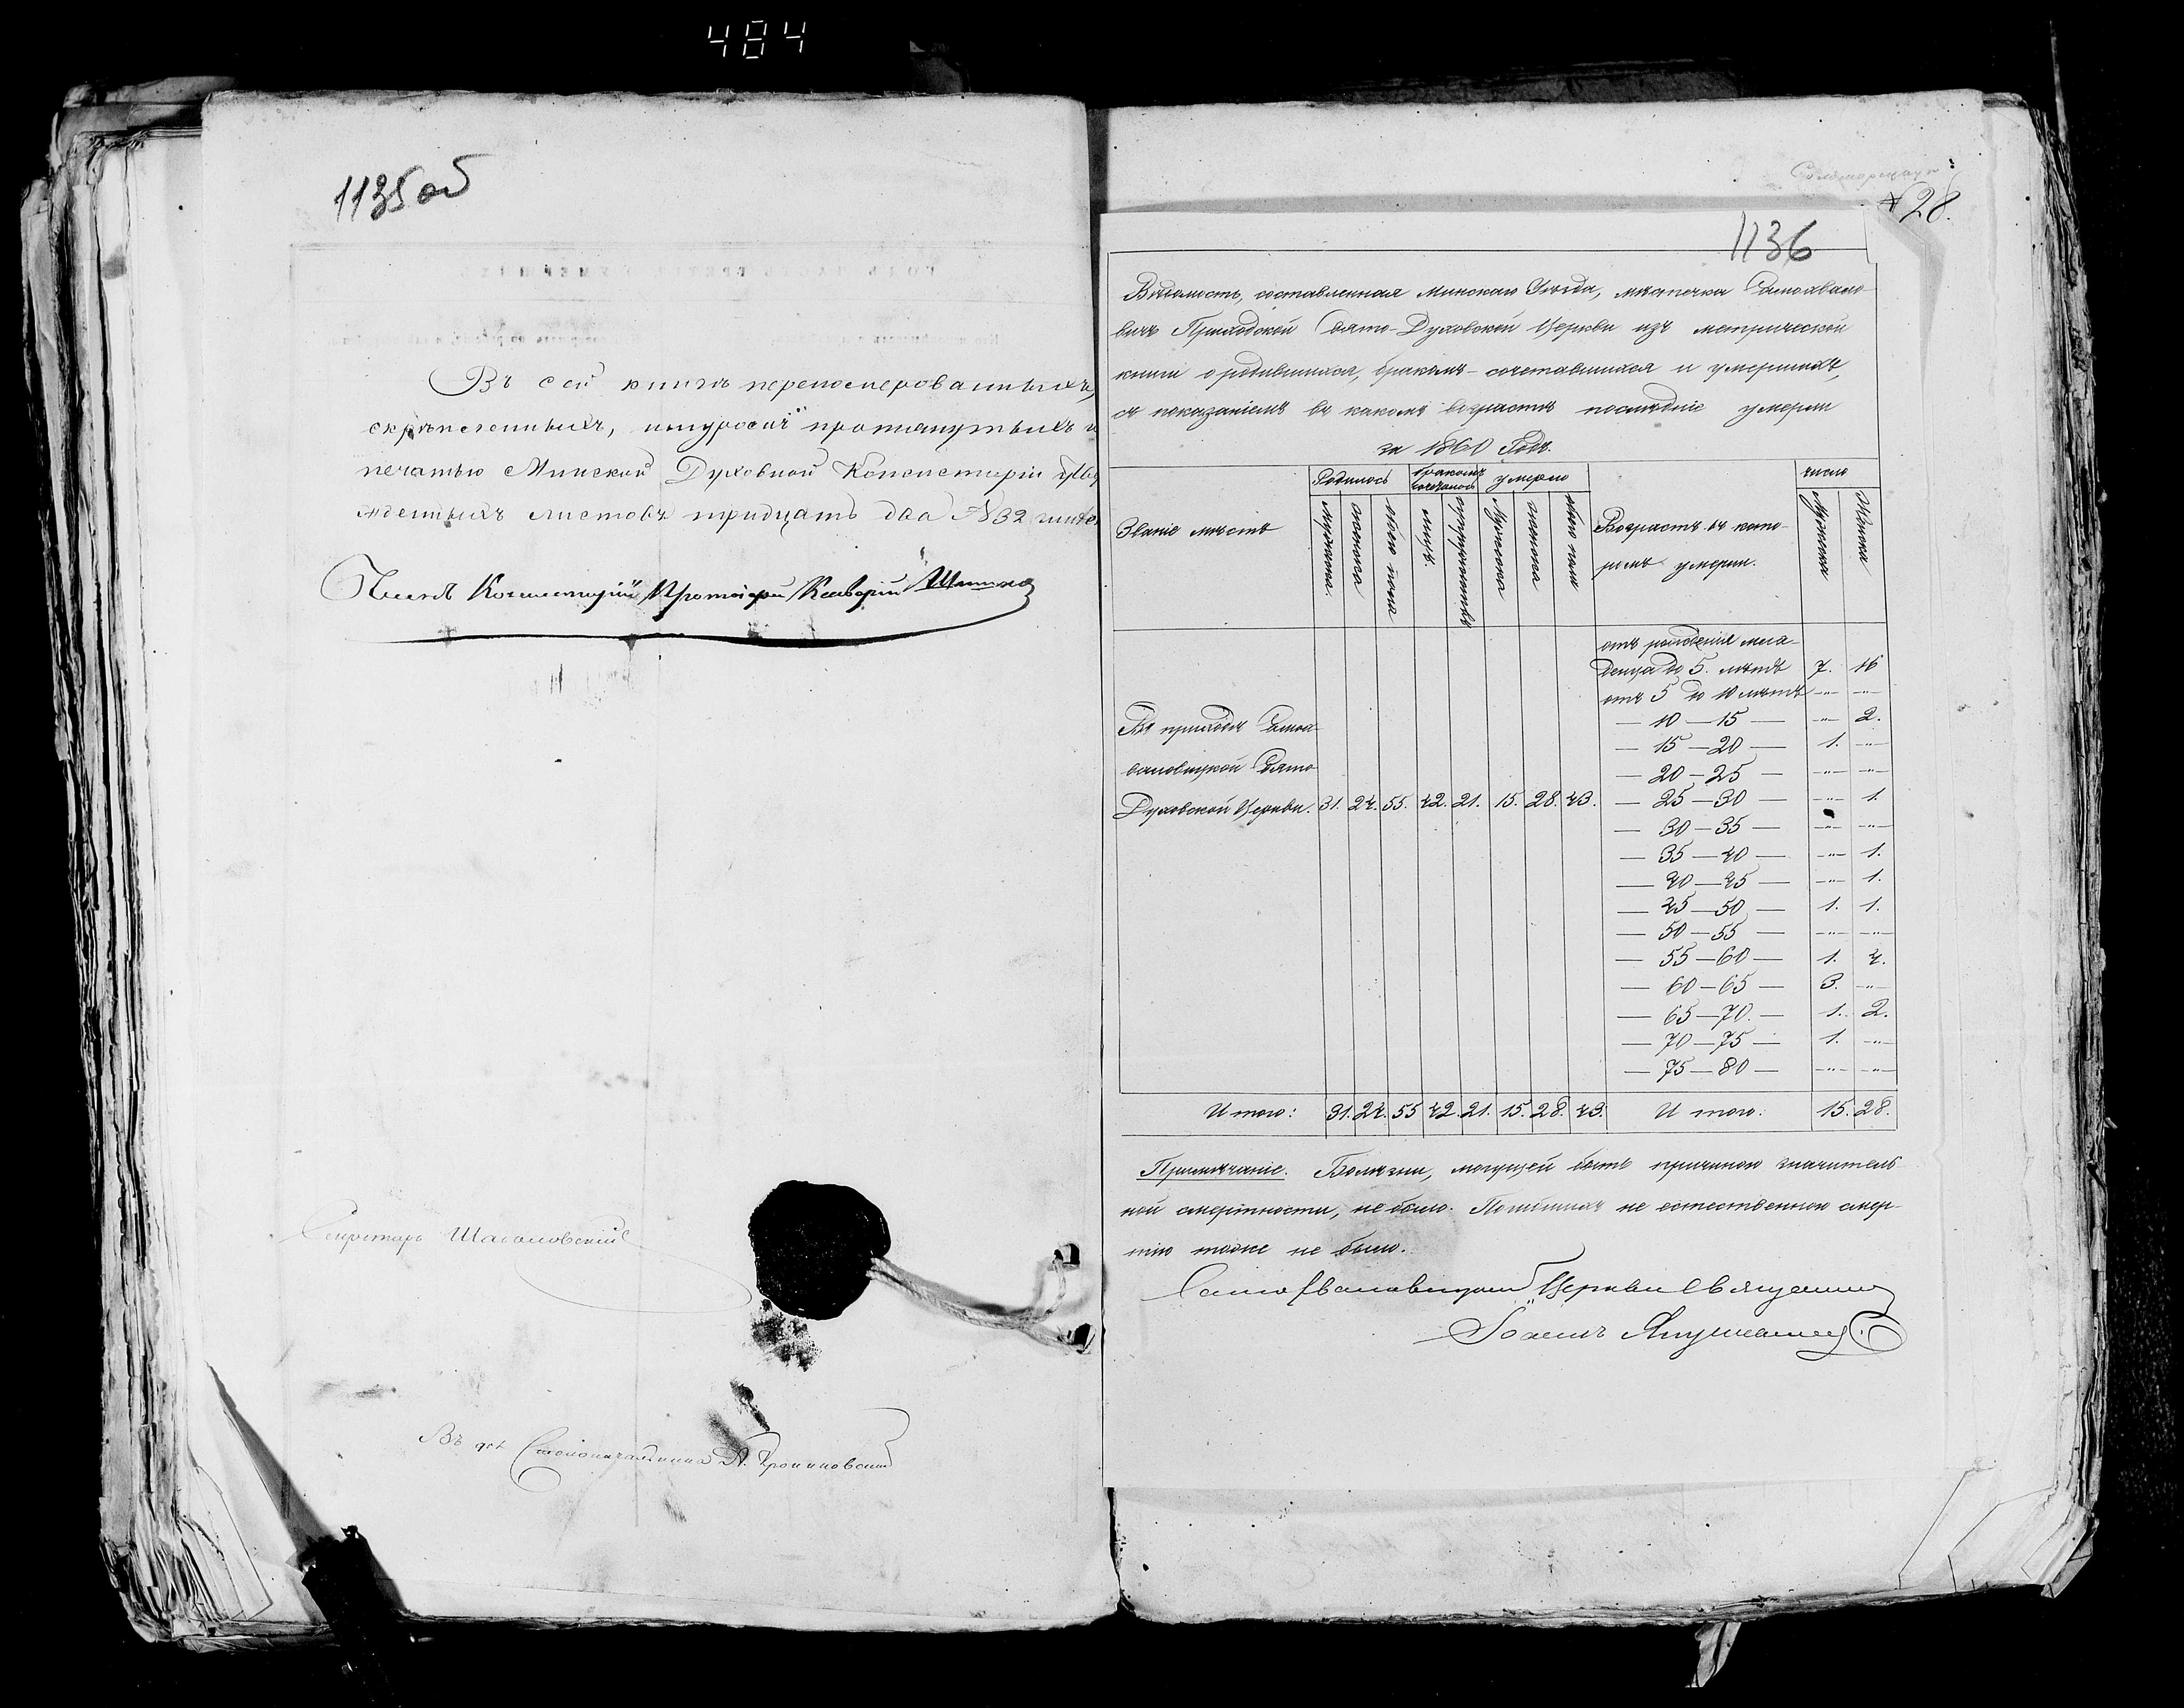 484
1135 об
Въ сей книгѣ перенумерованныхъ,
скрѣпленныхъ, шнуромъ протянутыхъ и
печатью Минской Духовной Консисторіи
листовъ тридцать два № 32
Членъ Консисторіи Протоіерей
Секретарь
Въ Столоначальника
№ 28.
1136
Вѣдомость, составленная Минскаго Уѣзда, мѣстечка Самохвало-
вичъ Приходской Свято-Духовской Церкви изъ метрической
книги о родившихся, бракомъ-сочетавшихся и умершихъ,
съ показаніемъ въ какомъ возрастѣ послѣдніе умерли
за 1860 Годъ.
Званіе мѣстъ
Родилось
мужеска
женска
обоего пола
бракомъ сочеталось
лицъ
супружествъ
умерло
мужеска
женска
обоего пола
Возрастъ въ кото-
ромъ умерли.
число
Мужеска
Женска
отъ рожденія мла-
денца до 5. лѣтъ 7. 16
отъ 5 до 10 лѣтъ —"— —"—
— 10 — 15 — —"— 2.
— 15 — 20 — 1. —"—
— 20 — 25 — —"— —"—
Въ приходѣ Самох-
валовицкой Свято
Духовской Церкви. 31. 24. 55. 42. 21. 15. 28. 43. — 25 — 30 — —"— 1.
— 30 — 35 — —"— —"—
— 35 — 40 — —"— 1.
— 40 — 45 — —"— 1.
— 45 — 50 — 1. 1.
— 50 — 55 — —"— —"—
— 55 — 60 — 1. 4.
— 60 — 65 — 3. —"—
— 65 — 70. — 1. 2.
— 70 — 75 — 1. —"—
— 75 — 80 — —"— —"—
Итого: 31. 24. 55 42. 21. 15. 28. 43. Итого: 15. 28.
Примѣчаніе. Болѣзни, могущей быть причиною значитель-
ной смертности, не было. Погибшихъ не естественною смер-
тію тоже не было.
Самохваловицкой Церкви Священникъ
Іоаннъ